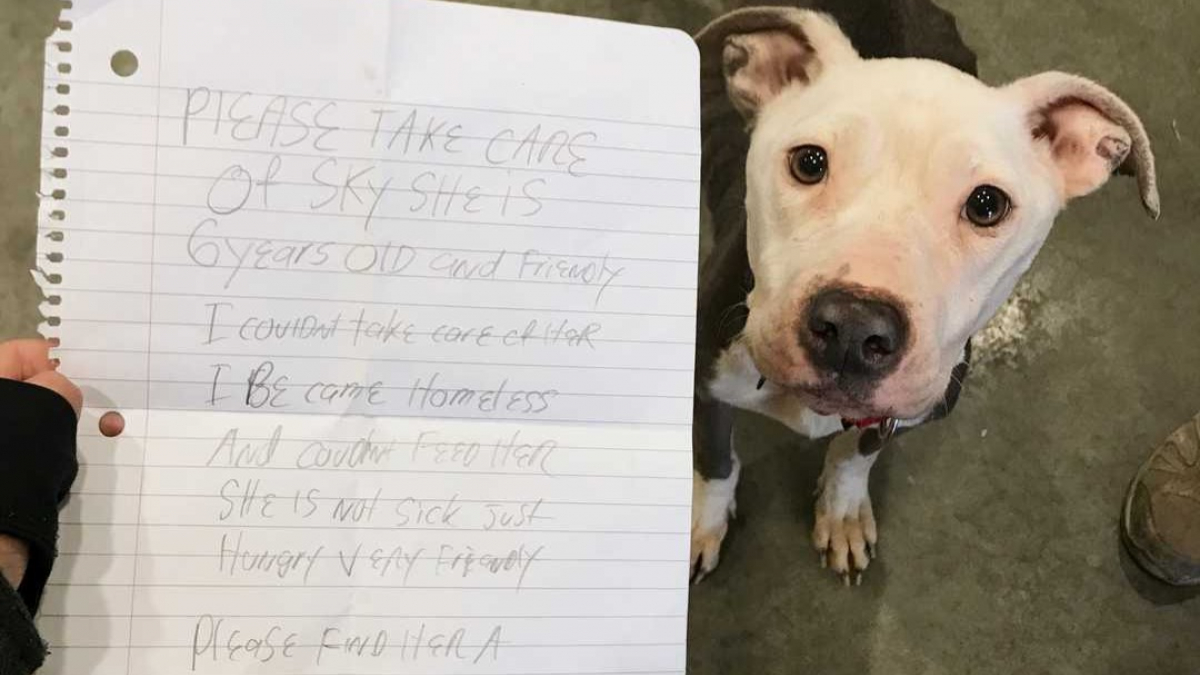 PLEASE TAKE CARE
Of SKY SHE iS
6 years OLD and Friendly
I couldnt take care of HER
I BE came Homeless
And couldnt FEED HER
SHE IS NOt Sick Just
Hungry VERY Friendly
Please FIND HER A